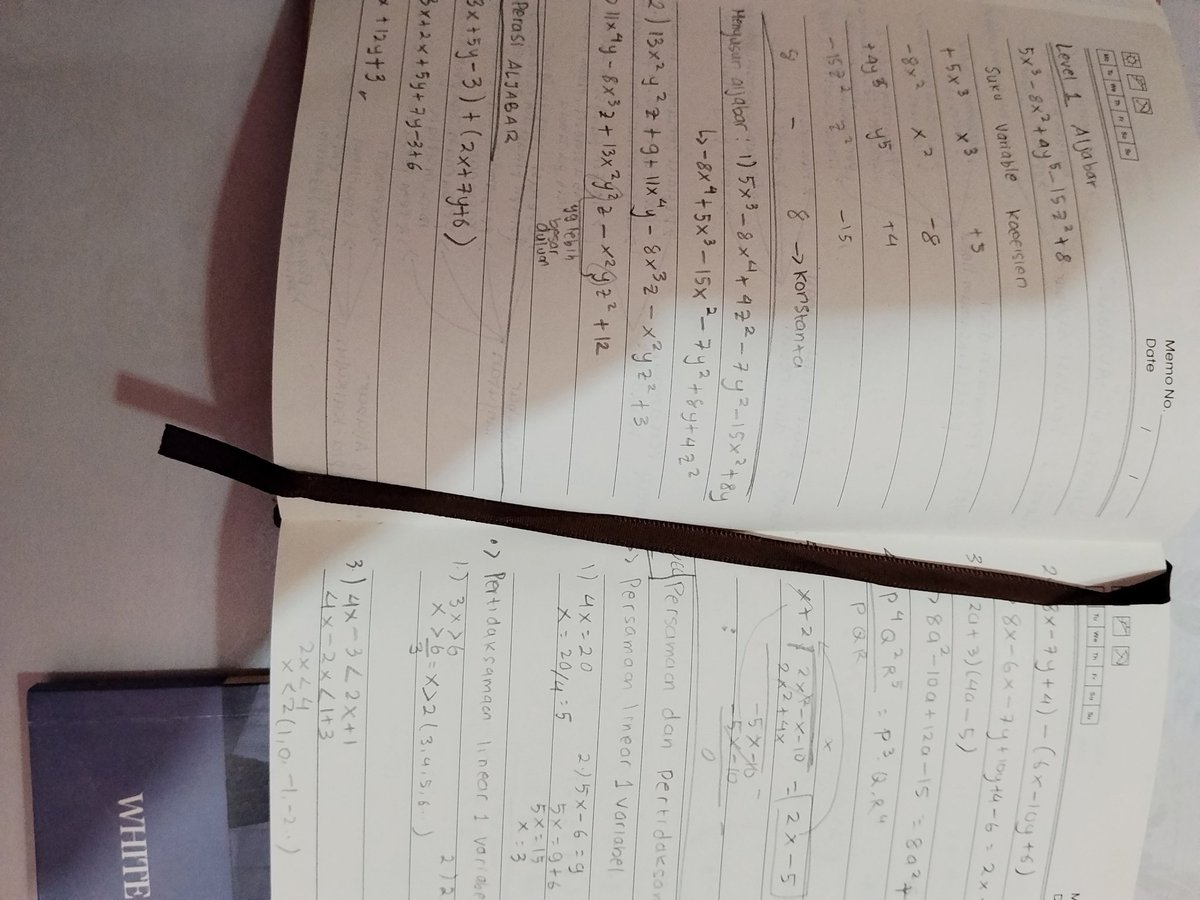 Memo No.
Date / /
Mo Tu We Th Fr Sa Su
Level 1 Aljabar
5x³ - 8x² + 4y⁵ - 15z² + 8
Suku Variable koefisien
+5x³ x³ +5
-8x² x² -8
+4y⁵ y⁵ +4
-15z² z² -15
8 - 8 → Konstanta
Menyusun aljabar : 1) 5x³ - 8x⁴ + 4z² - 7y² - 15x² + 8y
↳ -8x⁴ + 5x³ - 15x² - 7y² + 8y + 4z²
2) 13x²y²z + 9 + 11x⁴y - 8x³z - x²yz² + 3
11x⁴y - 8x³z + 13x²y²z - x²yz² + 12
yg lebih
besar
duluan
perasi ALJABAR
3x + 5y - 3) + (2x + 7y + 6)
3x + 2x + 5y + 7y - 3 + 6
x + 12y + 3
Tu We Th Fr Sa Su
8x - 7y + 4) - (6x - 10y + 6)
8x - 6x - 7y + 10y + 4 - 6 = 2x
3 2a + 3) (4a - 5)
8a² - 10a + 12a - 15 = 8a² +
P⁴ Q² R⁵ = P³ . Q . R⁴
P Q R
x
x + 2 2x² - x - 10 = 2x - 5
2x² + 4x
-5x - 10
-5x - 10
0
Persamaan dan Pertidaksam
> Persamaan linear 1 variabel
1) 4x = 20 2) 5x - 6 = 9
x = 20/4 = 5 5x = 9 + 6
5x = 15
x = 3
•> Pertidaksamaan linear 1 variabe
1.) 3x > 6 2) 2
x > 6/3 = x > 2 (3, 4, 5, 6 ..)
3.) 4x - 3 < 2x + 1
4x - 2x < 1 + 3
2x < 4
x < 2 (1, 0, -1, -2 ..)
WHITE